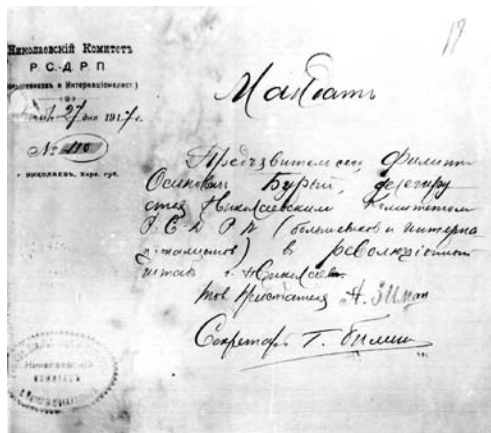 Николаевскій Комитетъ
Р.С.-Д.Р.П.
и Интернаціоналист.)
27 дня 1917 г.
№ 110
г. НИКОЛАЕВЪ, Херс. губ.
19
Мандатъ
Предъявитель сей Филипп
Осипович Бурый, делегиру
ется Николаевским Комитетом
Р С Д Р П (большевиков и интерна
ционалистов) в революціонный
штаб г. Николаева
тов Председателя
Секретарь Г.
Николаевскій
КОМИТЕТЪ